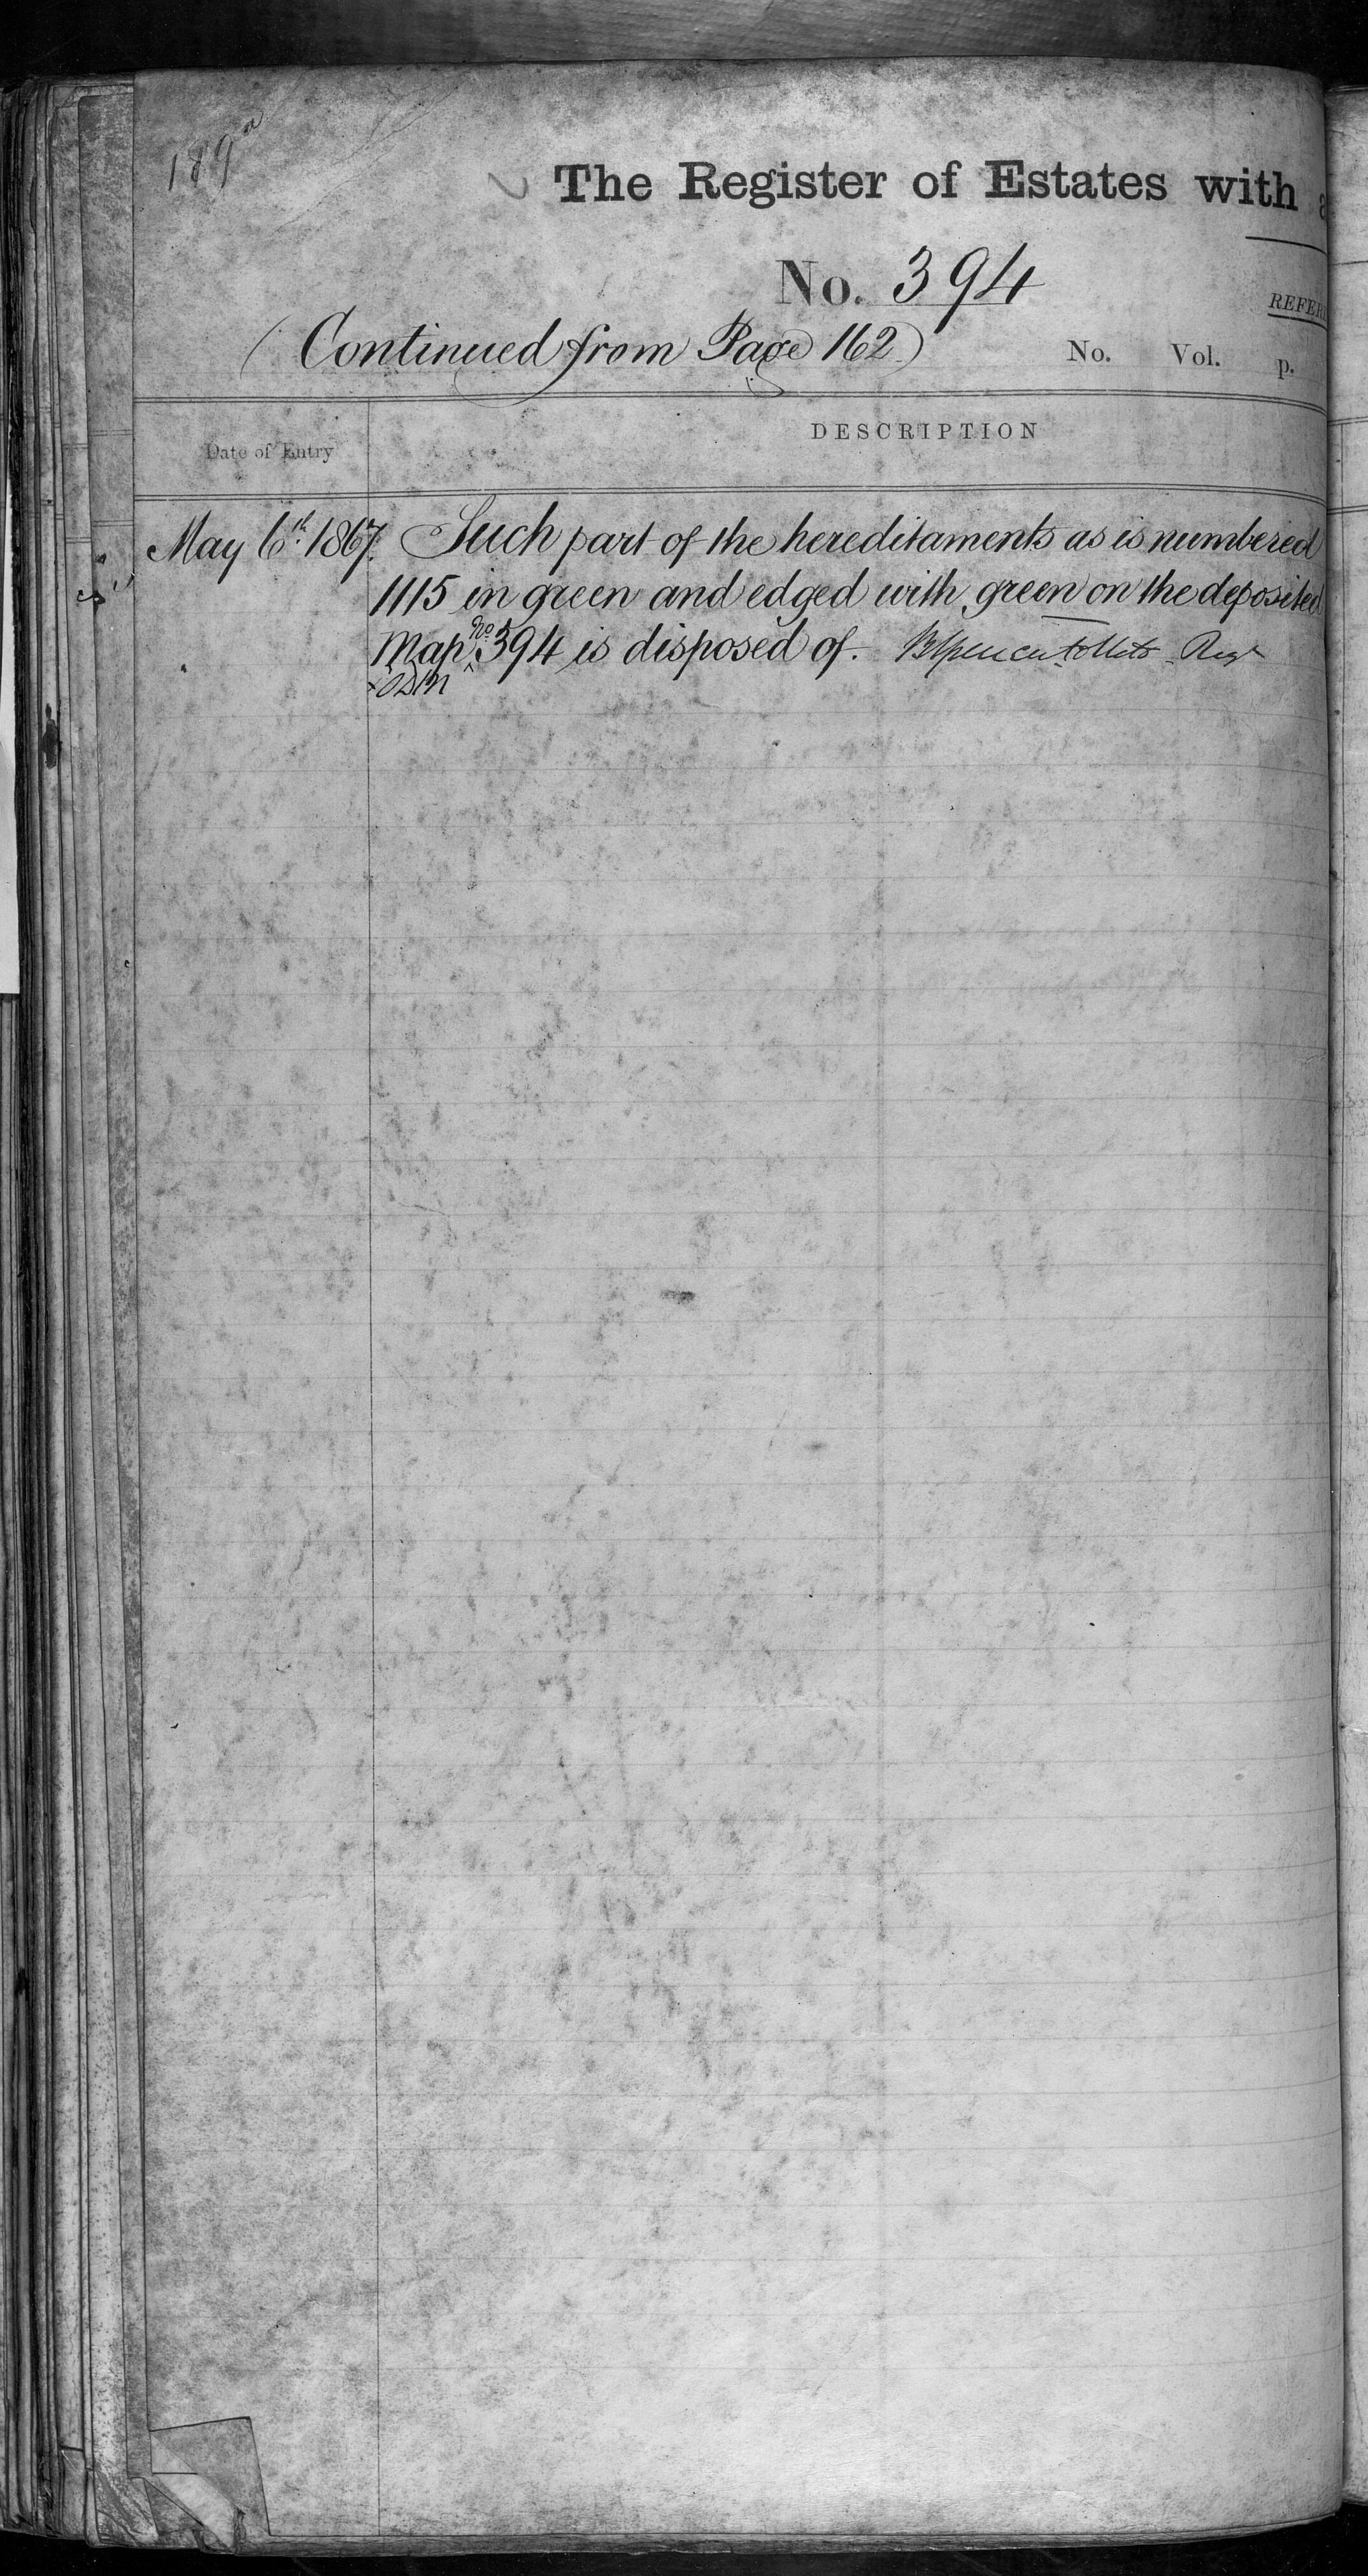 189a
The Register of Estates with a
No. 394
REFER
(Continued from Page 162)
No. Vol. p.
Date of Entry
DESCRIPTION
May 6th 1867. Such part of the hereditaments as is numbered
1115 in green and edged with green on the deposited
Map No. 394 is disposed of. Regr